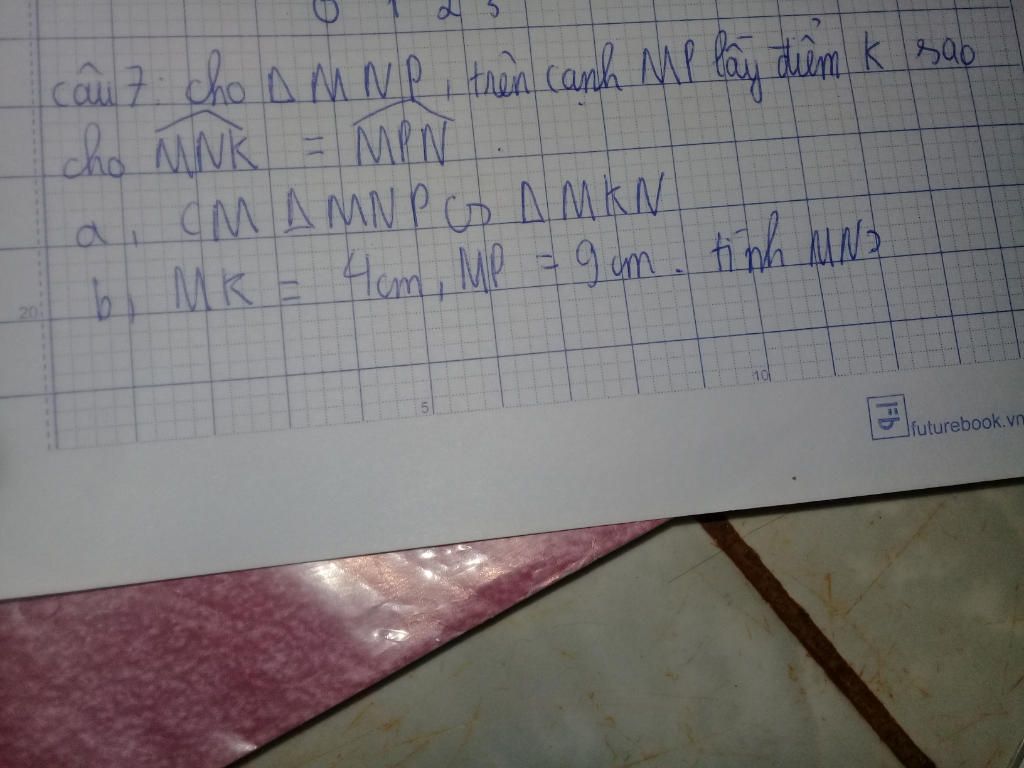 0 1 2 3
câu 7: cho Δ MNP, trên cạnh MP lấy điểm K sao
cho \widehat{MNK} = \widehat{MPN}
a, CM Δ MNP ∽ Δ MKN
20
b, MK = 4cm, MP = 9cm. tính MN?
5
10
futurebook.vn